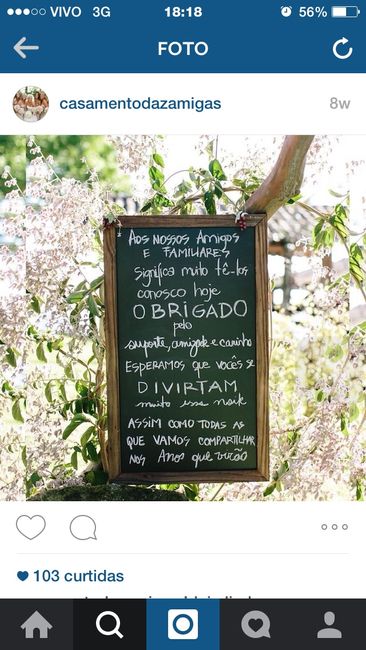 VIVO 3G 18:18 56%
FOTO
casamentodazamigas 8w
Aos nossos Amigos
E FAMILIARES
Significa muito tê-los
conosco hoje
OBRIGADO
pelo
suporte, amizade e carinho
ESPERAMOS QUE VOCÊS SE
DIVIRTAM
muito essa noite
ASSIM COMO TODAS AS
QUE VAMOS COMPARTILHAR
NOS Anos que virão
103 curtidas